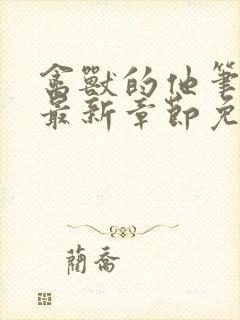 禽獸的他筆
最新章節免
蘭喬